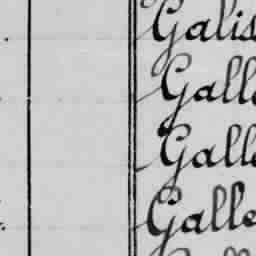 Galis
Galle
Galle
Galle